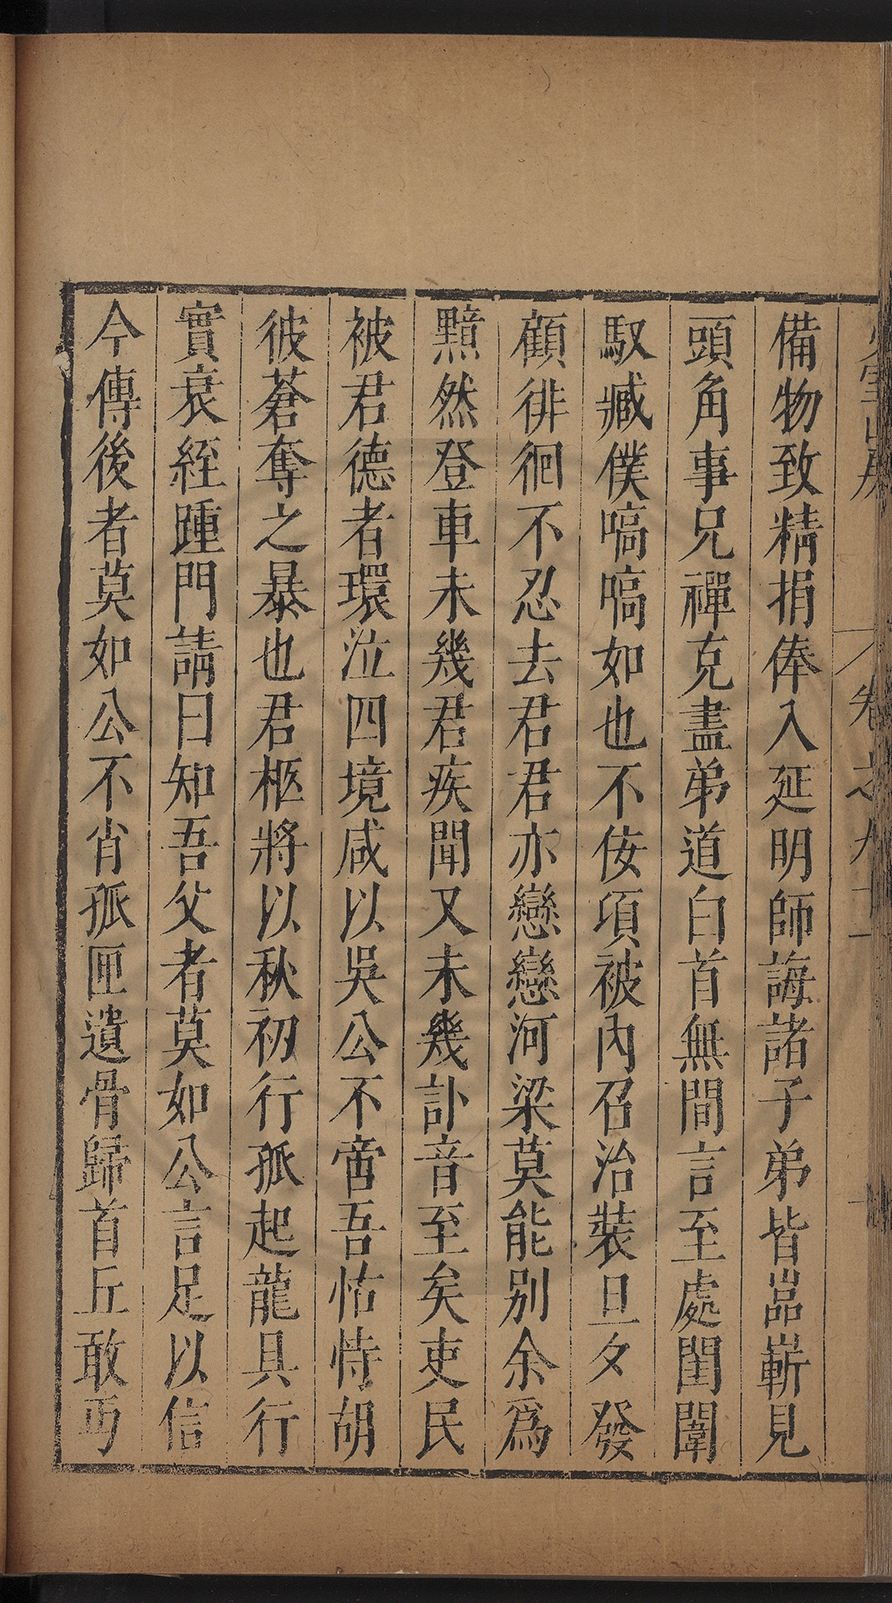 卷之九
備物致精捐俸入延明師誨諸子弟皆嵓嶄見
頭角事兄禪克盡弟道白首無間言至處閨闈
馭臧僕嗃嗃如也不佞項被內召治裝旦夕發
顧徘徊不忍去君君亦戀戀河梁莫能別余爲
黯然登車未幾君疾聞又未幾訃音至矣吏民
被君德者環泣四境咸以吳公不啻吾怙恃胡
彼蒼奪之暴也君柩將以秋初行孤起龍具行
實衰絰踵門請曰知吾父者莫如公言足以信
今傳後者莫如公不肖孤匪遺骨歸首丘敢丐